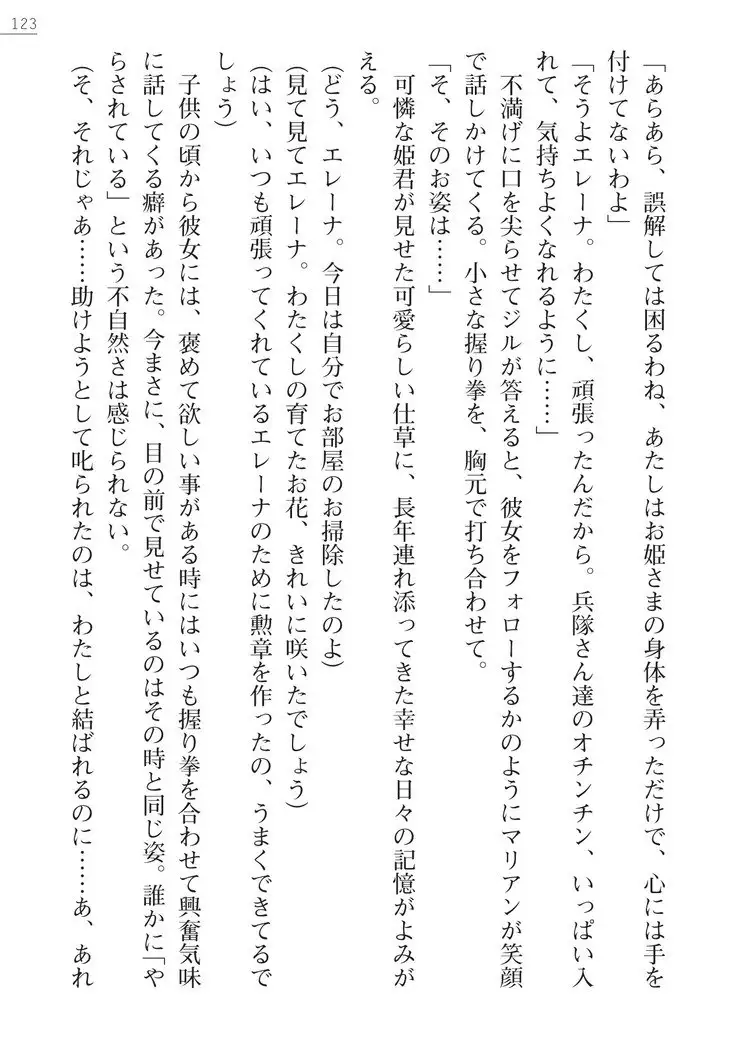 123
「あらあら、誤解しては困るわね、あたしはお姫さまの身体を弄っただけで、心には手を
付けてないわよ」
「そうよエレーナ。わたくし、頑張ったんだから。兵隊さん達のオチンチン、いっぱい入
れて、気持ちよくなれるように……」
不満げに口を尖らせてジルが答えると、彼女をフォローするかのようにマリアンが笑顔
で話しかけてくる。小さな握り拳を、胸元で打ち合わせて。
「そ、そのお姿は……」
可憐な姫君が見せた可愛らしい仕草に、長年連れ添ってきた幸せな日々の記憶がよみが
える。
(どう、エレーナ。今日は自分でお部屋のお掃除したのよ)
(見て見てエレーナ。わたくしの育てたお花、きれいに咲いたでしょう)
(はい、いつも頑張ってくれているエレーナのために勲章を作ったの、うまくできてるで
しょう)
子供の頃から彼女には、褒めて欲しい事がある時にはいつも握り拳を合わせて興奮気味
に話してくる癖があった。今まさに、目の前で見せているのはその時と同じ姿。誰かに「や
らされている」という不自然さは感じられない。
(そ、それじゃあ……助けようとして叱られたのは、わたしと結ばれるのに……あ、あれ